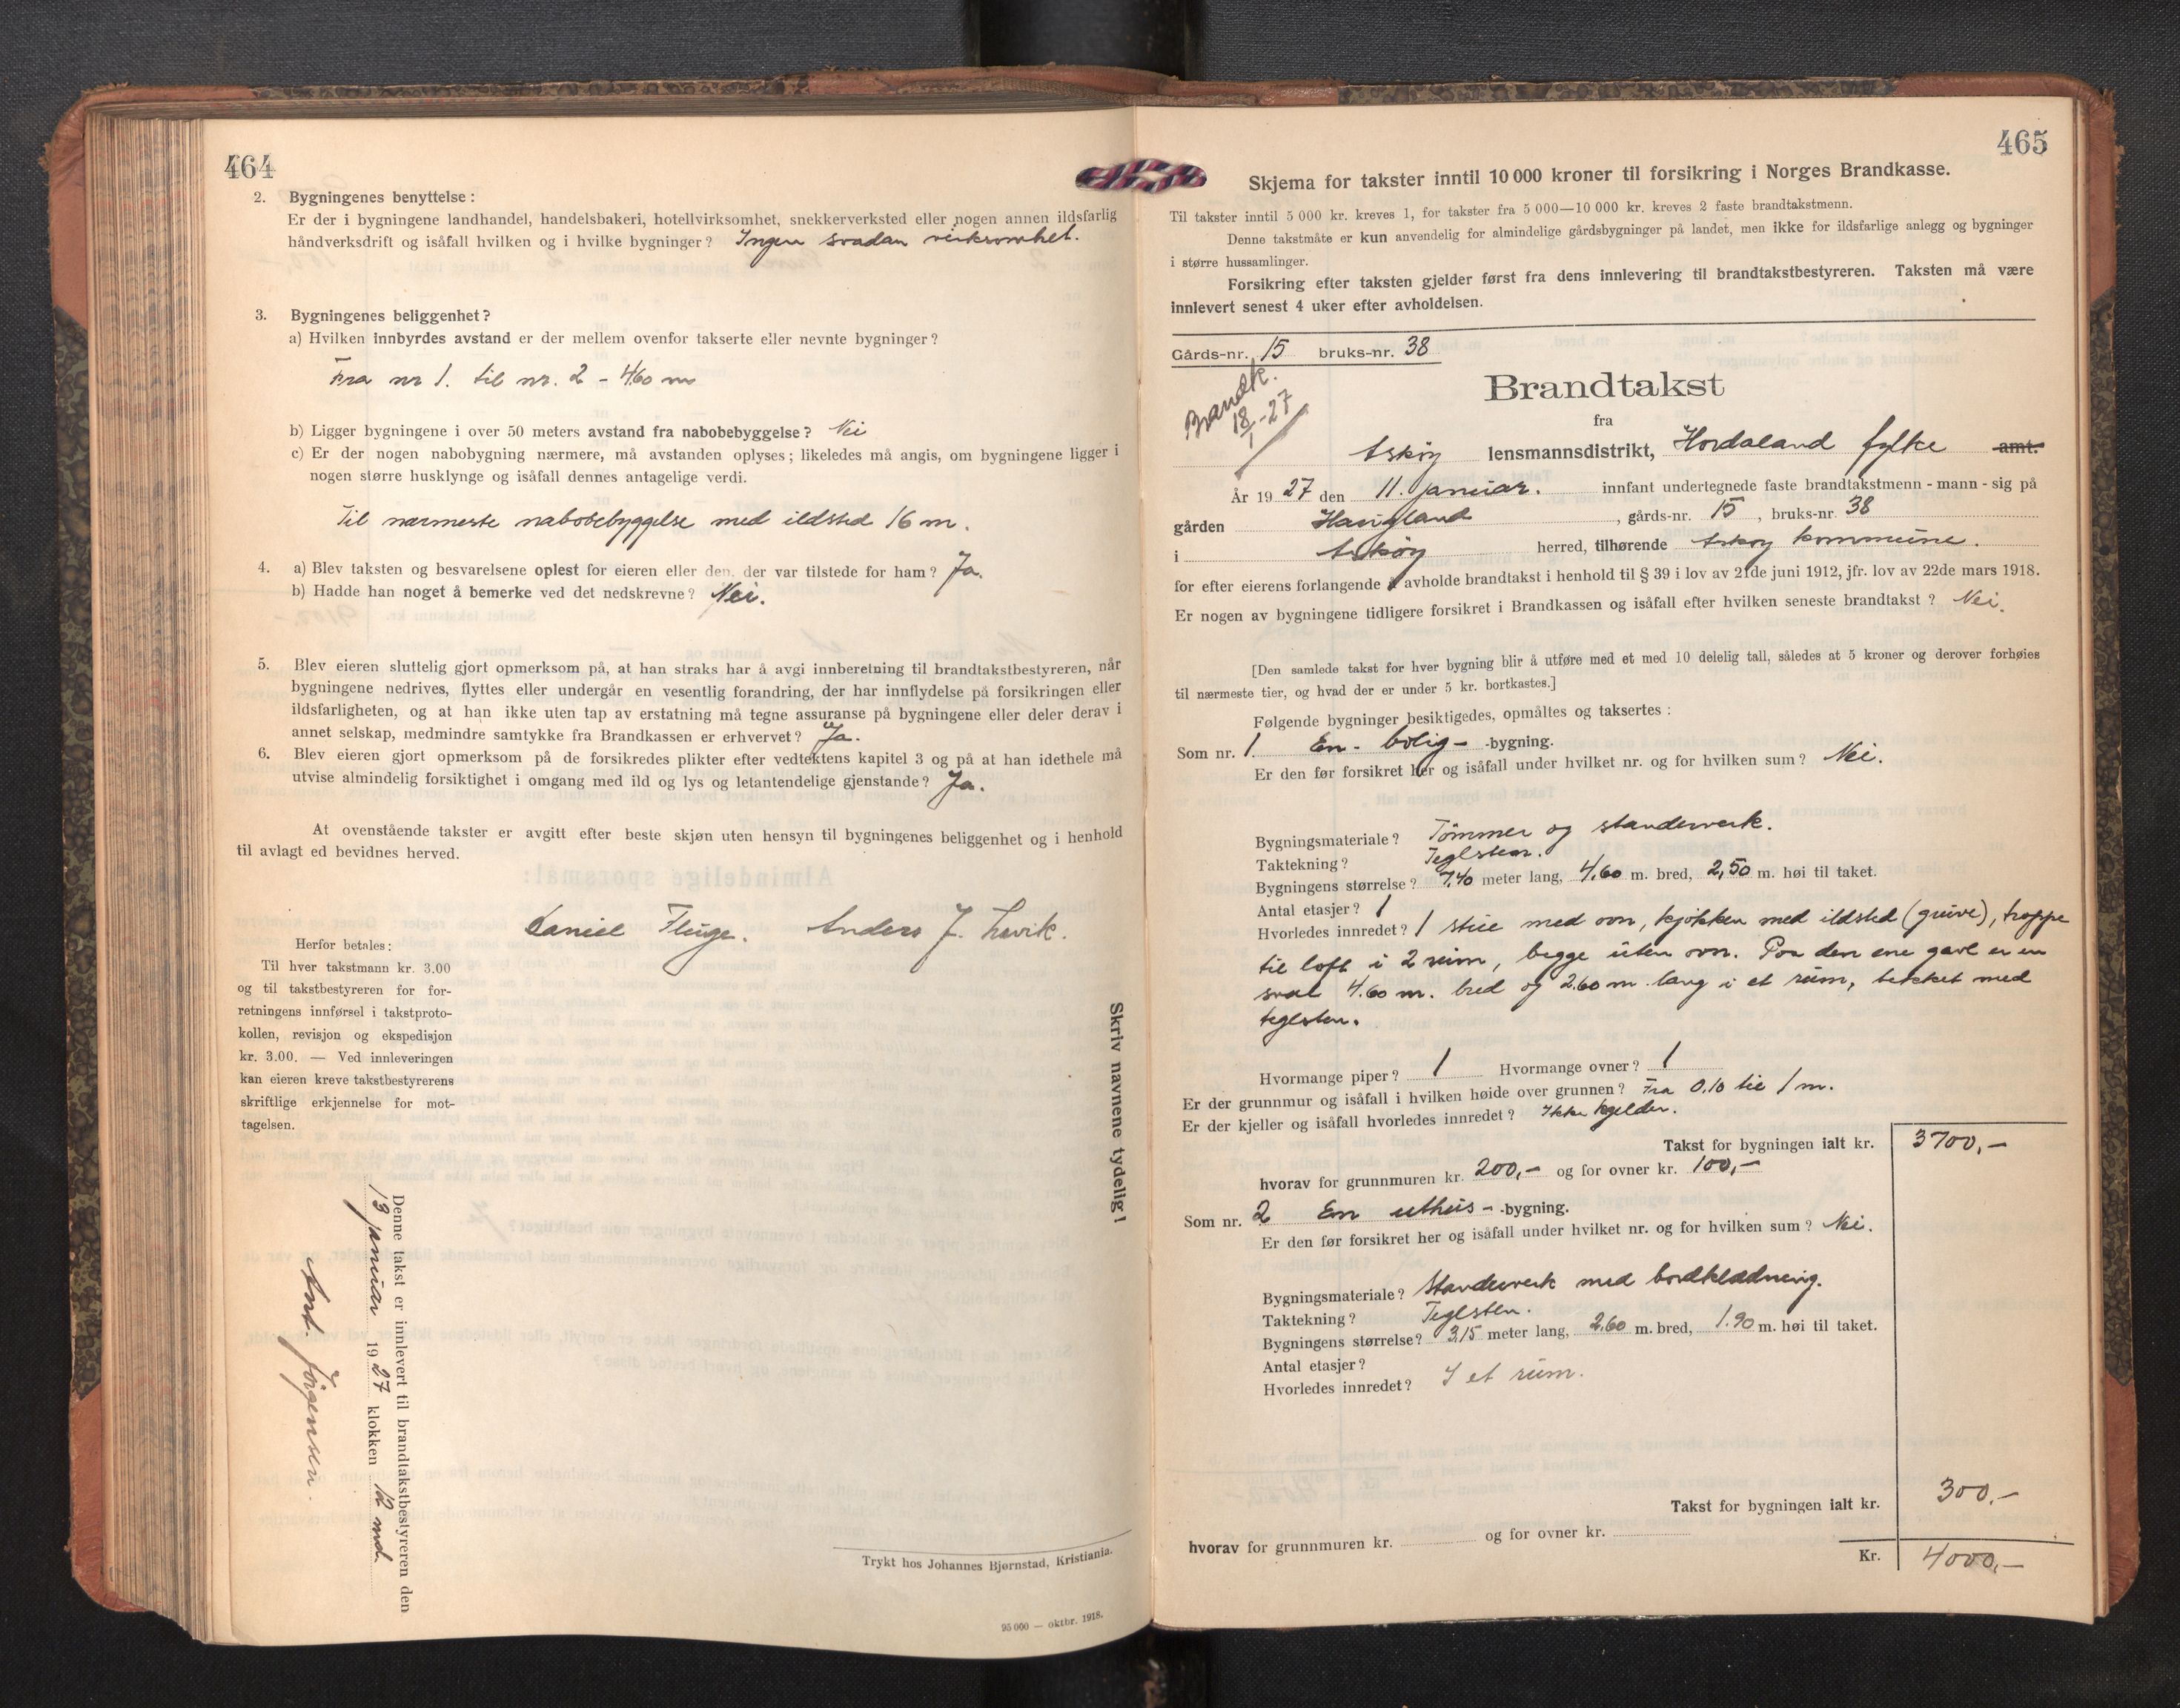 464
2. Bygningenes benyttelse:
Er der i bygningene landhandel, handelsbakeri, hotellvirksomhet, snekkerverksted eller nogen annen ildsfarlig
håndverksdrift og isåfall hvilken og i hvilke bygninger? Ingen saadan virksomhet.
3. Bygningenes beliggenhet?
a) Hvilken innbyrdes avstand er der mellem ovenfor takserte eller nevnte bygninger?
Fra nr 1. til nr. 2 - 4,60 m
b) Ligger bygningene i over 50 meters avstand fra nabobebyggelse? Nei
c) Er der nogen nabobygning nærmere, må avstanden oplyses; likeledes må angis, om bygningene ligger i
nogen større husklynge og isåfall dennes antagelige verdi.
Til nærmeste nabobebyggelse med ildsted 16 m.
4. a) Blev taksten og besvarelsene oplest for eieren eller den, der var tilstede for ham? Ja.
b) Hadde han noget å bemerke ved det nedskrevne? Nei.
5. Blev eieren sluttelig gjort opmerksom på, at han straks har å avgi innberetning til brandtakstbestyreren, når
bygningene nedrives, flyttes eller undergår en vesentlig forandring, der har innflydelse på forsikringen eller
ildsfarligheten, og at han ikke uten tap av erstatning må tegne assuranse på bygningene eller deler derav i
annet selskap, medmindre samtykke fra Brandkassen er erhvervet? Ja.
6. Blev eieren gjort opmerksom på de forsikredes plikter efter vedtektens kapitel 3 og på at han idethele må
utvise almindelig forsiktighet i omgang med ild og lys og letantendelige gjenstande? Ja.
At ovenstående takster er avgitt efter beste skjøn uten hensyn til bygningenes beliggenhet og i henhold
til avlagt ed bevidnes herved.
Daniel Fluge. Anders J. Levik.
Herfor betales:
Til hver takstmann kr. 3.00
og til takstbestyreren for for-
retningens innførsel i takstproto-
kollen, revisjon og ekspedisjon
kr. 3.00. — Ved innleveringen
kan eieren kreve takstbestyrerens
skriftlige erkjennelse for mot-
tagelsen.
Skriv navnene tydelig!
Denne takst er innlevert til brandtakstbestyreren den
13 januar 1927 klokken 12 md.
Ant Jörgensen.
Trykt hos Johannes Bjørnstad, Kristiania.
95 000 — oktbr. 1918.
465
Skjema for takster inntil 10 000 kroner til forsikring i Norges Brandkasse.
Til takster inntil 5 000 kr. kreves 1, for takster fra 5 000—10 000 kr. kreves 2 faste brandtakstmenn.
Denne takstmåte er kun anvendelig for almindelige gårdsbygninger på landet, men ikke for ildsfarlige anlegg og bygninger
i større hussamlinger.
Forsikring efter taksten gjelder først fra dens innlevering til brandtakstbestyreren. Taksten må være
innlevert senest 4 uker efter avholdelsen.
Gårds-nr. 15 bruks-nr. 38
Brandk.
18/1-27
Brandtakst
fra
Askøy lensmannsdistrikt, Hordaland fylke amt.
År 1927 den 11. januar. innfant undertegnede faste brandtakstmenn - mann - sig på
gården Haugland, gårds-nr. 15, bruks-nr. 38
i Askøy herred, tilhørende Askøy kommune.
for efter eierens forlangende å avholde brandtakst i henhold til § 39 i lov av 21de juni 1912, jfr. lov av 22de mars 1918.
Er nogen av bygningene tidligere forsikret i Brandkassen og isåfall efter hvilken seneste brandtakst? Nei.
[Den samlede takst for hver bygning blir å utføre med et med 10 delelig tall, således at 5 kroner og derover forhøies
til nærmeste tier, og hvad der er under 5 kr. bortkastes.]
Følgende bygninger besiktigedes, opmåltes og taksertes:
Som nr. 1. En- bolig- -bygning.
Er den før forsikret her og isåfall under hvilket nr. og for hvilken sum? Nei.
Bygningsmateriale? Tømmer og standerverk.
Taktekning? Teglsten.
Bygningens størrelse? 7,40 meter lang, 4,60 m. bred, 2,50 m. høi til taket.
Antal etasjer? 1
Hvorledes innredet? 1 stue med ovn, kjøkken med ildsted (gruve), trappe
til loft i 2 rum, begge uten ovn. Paa den ene gavl er en
sval 4.60 m. bred og 2.60 m. lang i et rum, tækket med
teglsten.
Hvormange piper? 1 Hvormange ovner? 1
Er der grunnmur og isåfall i hvilken høide over grunnen? Fra 0.10 til 1 m.
Er der kjeller og isåfall hvorledes innredet? Ikke kjelder.
Takst for bygningen ialt kr. 3700,-
hvorav for grunnmuren kr. 200,- og for ovner kr. 100,-
Som nr. 2 En uthus- -bygning.
Er den før forsikret her og isåfall under hvilket nr. og for hvilken sum? Nei.
Bygningsmateriale? Standerverk med bordklædning.
Taktekning? Teglsten.
Bygningens størrelse? 3,15 meter lang, 2.60 m. bred, 1.90 m. høi til taket.
Antal etasjer?
Hvorledes innredet? I et rum.
Takst for bygningen ialt kr. 300,-
hvorav for grunnmuren kr. og for ovner kr.
Kr. 4000,-